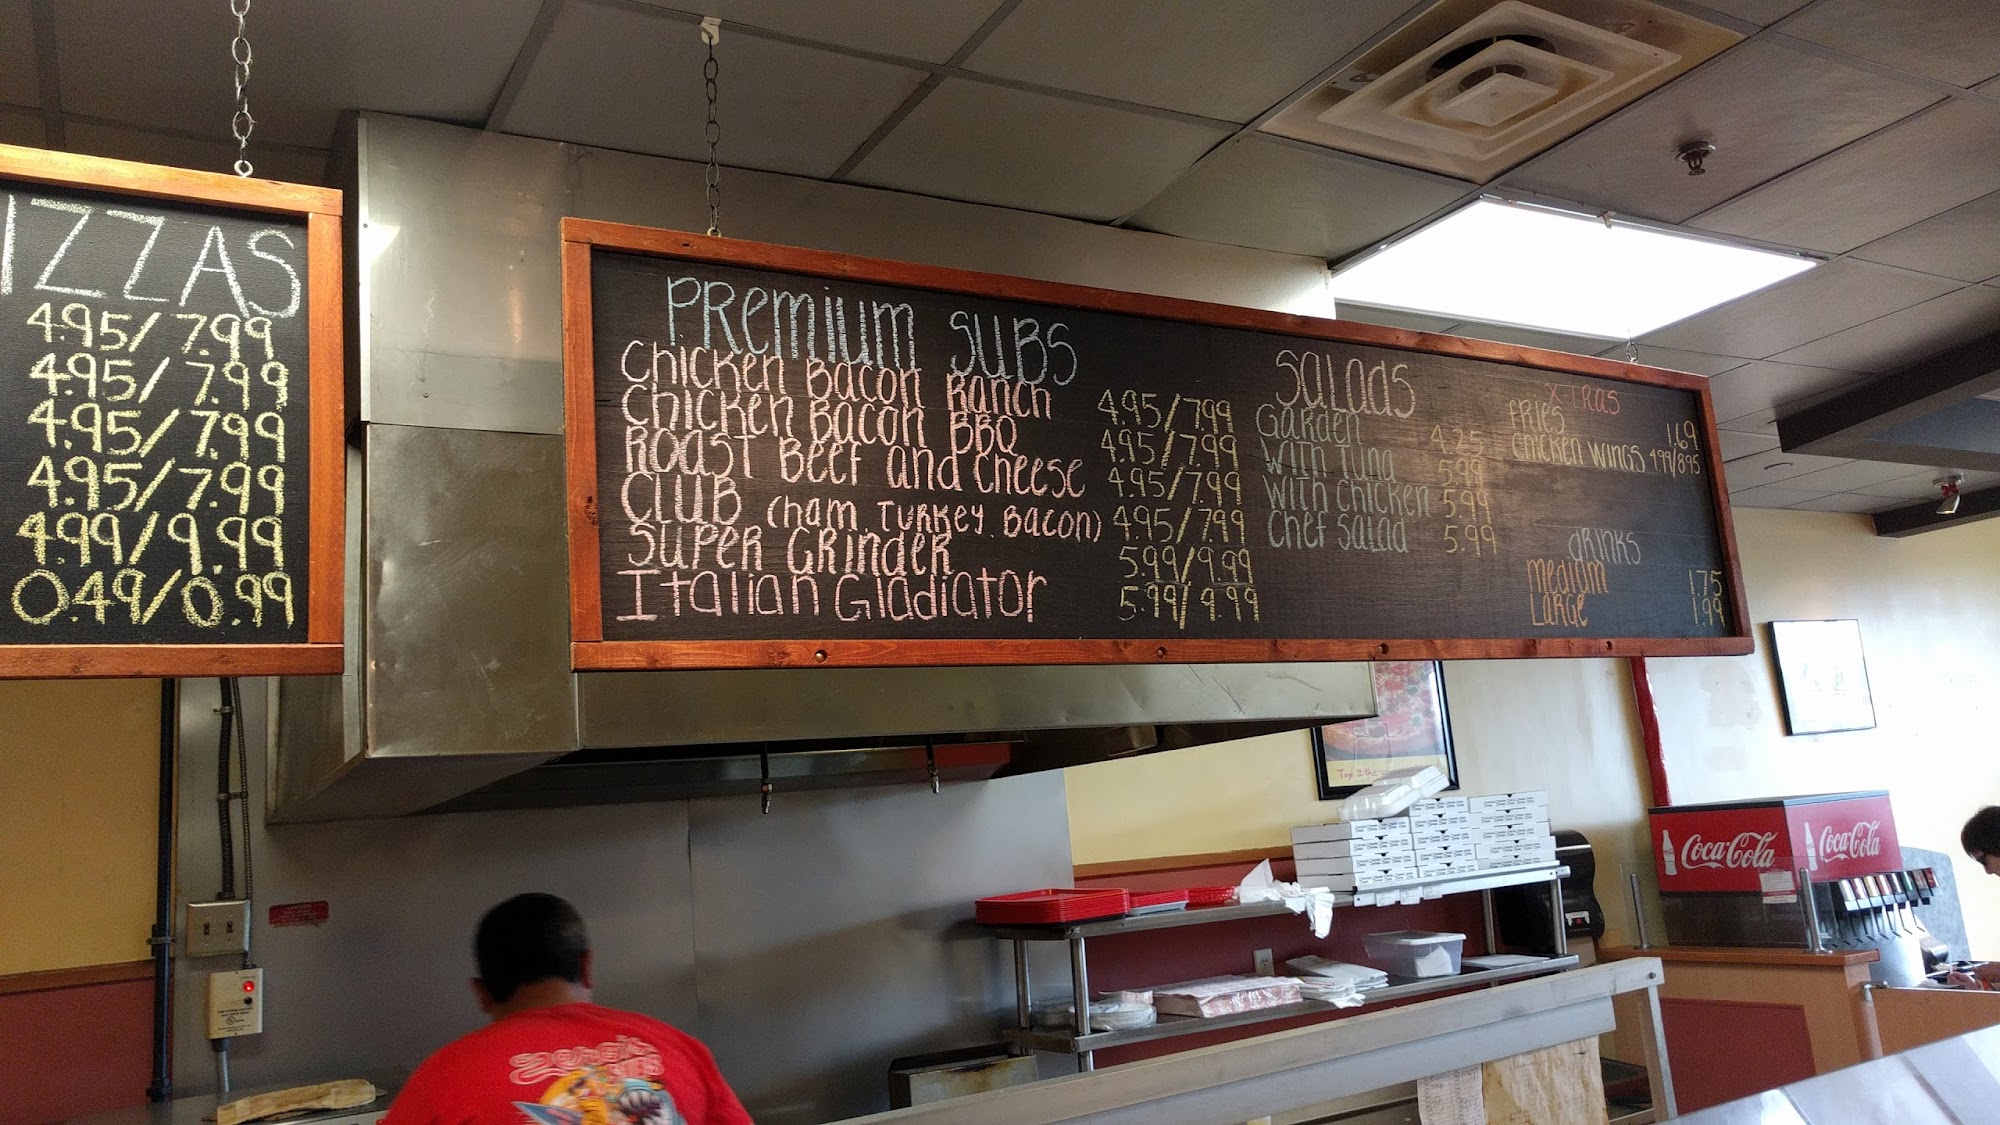 IZZAS
4.95/7.99
4.95/7.99
4.95/7.99
4.95/7.99
4.99/9.99
0.49/0.99
Premium Subs
Chicken Bacon Ranch 4.95/7.99
Chicken Bacon BBQ 4.95/7.99
Roast Beef and Cheese 4.95/7.99
Club (Ham, Turkey, Bacon) 4.95/7.99
Super Grinder 5.99/9.99
Italian Gladiator 5.99/9.99
Salads
Garden 4.25
With Tuna 5.99
With Chicken 5.99
Chef Salad 5.99
X-tras
Fries 1.69
Chicken Wings 4.99/8.95
Drinks
Medium 1.75
Large 1.99
Coca-Cola
Coca-Cola